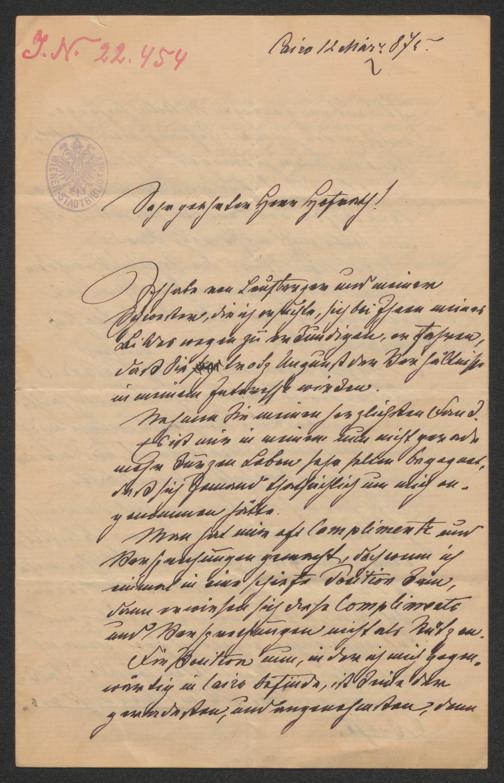 J.N. 22.454
Cairo 12 März 875.
Sehr geehrter Herr Hofrath!
Ich habe von Laufberger und meiner
Schwester, die ich ersuchte, sich bei Ihnen meines
Bildes wegen zu erkundigen, erfahren,
daß Sie trotz Ungunst der Verhältnisse
in meinem Interesse wirken.
Nehmen Sie meinen herzlichsten Dank.
Es ist mir in meinem nun nicht gerade
mehr kurzen Leben sehr selten begegnet,
daß sich Jemand thatsächlich um mich an-
genommen hätte.
Man hat mir oft Complimente und
Versprechungen gemacht, doch wenn ich
einmal in eine schiefe Position kam,
dann erwiesen sich diese Complimente
und Versprechungen nicht als Stützen.
Die Position nun, in der ich mich gegen-
wärtig in Cairo befinde, ist keine der
geradesten, und angenehmsten, denn